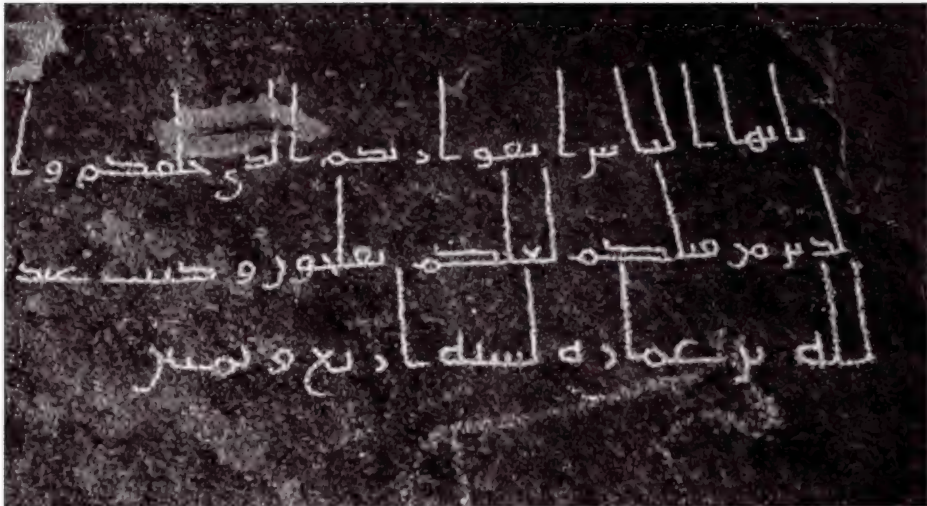 يايها الناس اتقوا ربكم الذي خلقكم وا
لذين من قبلكم لعلكم تفلحون وكتب عبد
الله بن عمارة لسنة اربع وثمنين